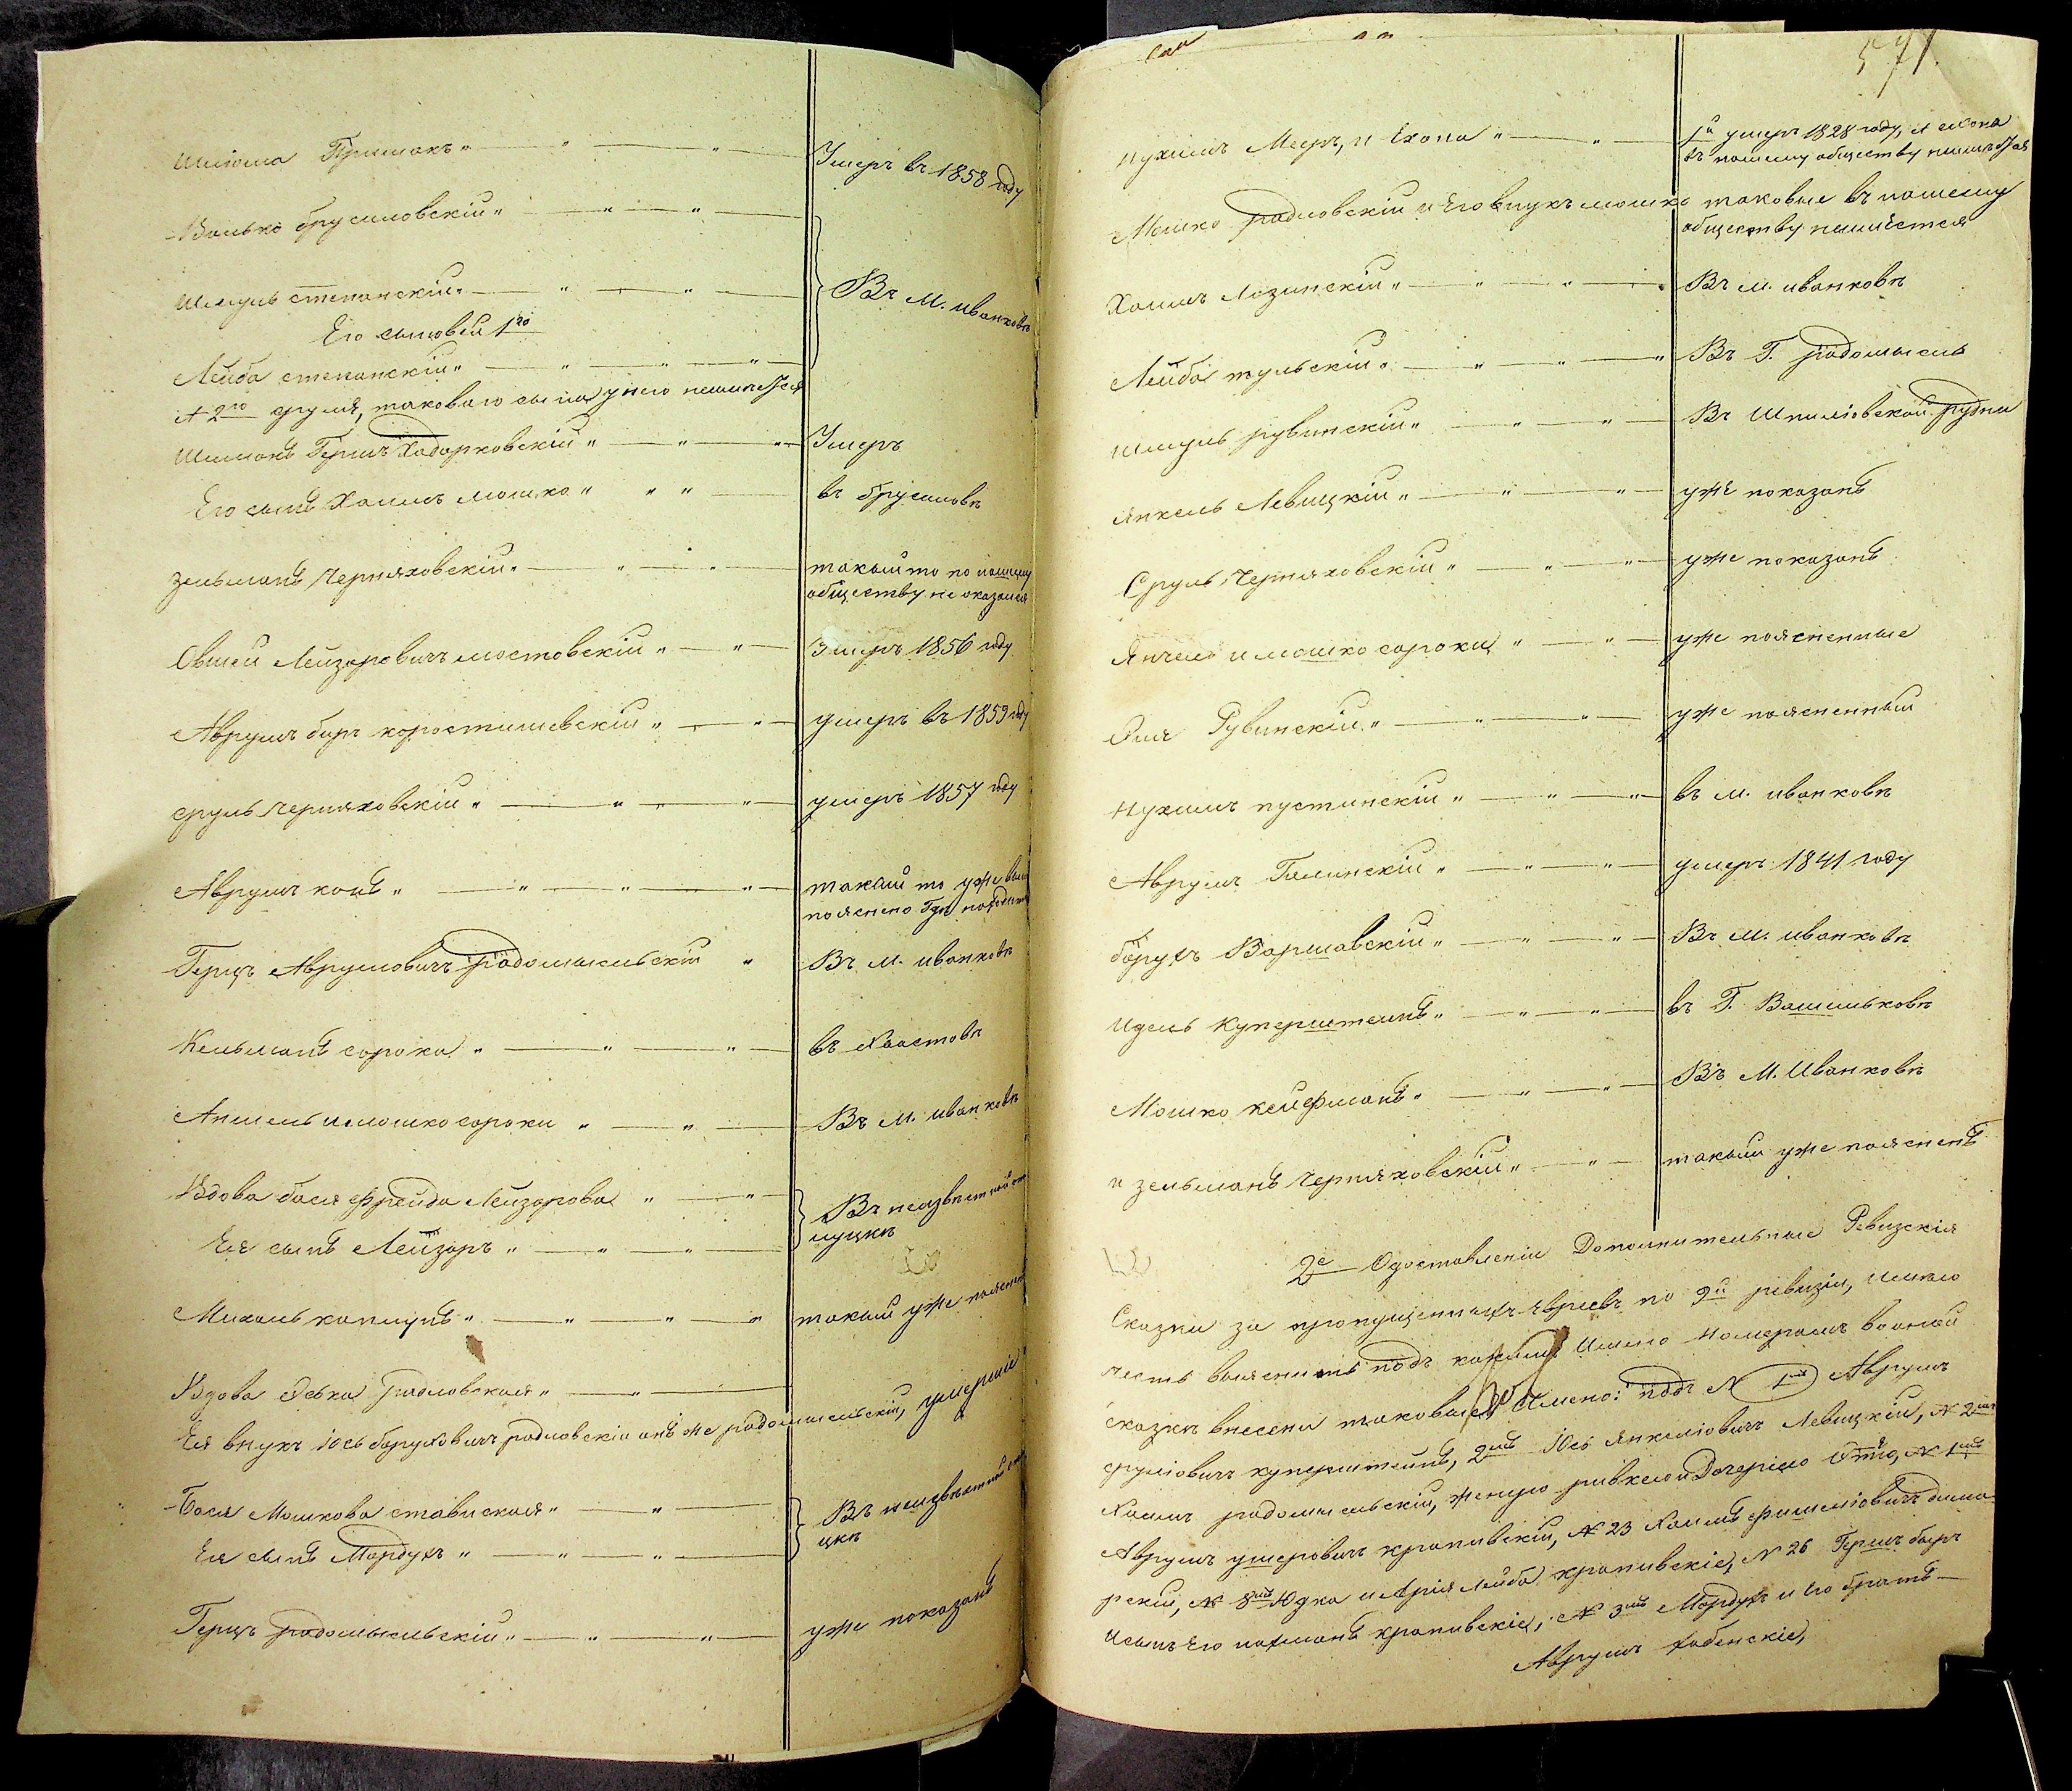 Шлiома Примакъ " — " — " — Умеръ въ 1858 году
Волько брусиловскiй " — " — " —
Шмуль степанскiй " — " — " — Въ М. иванковѣ
Его сыновей 1го
Лейба степанскiй " — " — " — " —
А 2го сруля, таковаго сына у него неимѣется
Шимонъ Гершъ Ходорковскiй " — " — " — Умеръ
Его сынъ Хаимъ мошко " " " — въ брусиловѣ
Зельманъ Черняховскiй " — " — " — такой то по нашему
обществу не оказался
Овшей Лейзеровичъ мостовскiй " — " — Умеръ 1856 году
Аврумъ беръ коростишевскiй " — " — умеръ въ 1859 году
сруль Черняховскiй " — " " " — умеръ 1857 году
Аврумъ конъ " — " — " — " — такой то уже
пояснено Гдѣ
Герцъ Аврумовичъ радомысльскiй " Въ м. иванковѣ
Кельманъ сорока " — " — " — въ Хвастовѣ
Аншель и мошко сороки " — " — Въ м. иванковѣ
Вдова бася Фрейда Лейзерова " — " — Въ неизвѣстной от
лучкѣ
Ея сынъ Лейзоръ " — " — " —
Михель капцунъ " — " — " — " такой уже пояснен
Вдова Оська радловская " — " —
Ея внукъ iось боруховичъ радловскiй онъ же радомысльскiй, умершiе
Бася Мошкова ставиская " — " — Въ неизвѣстной
чкѣ
Ея сынъ Мордухъ " — " — " —
Герцъ радомысльскiй " — " — " — уже показанъ
571.
Нухимъ Мееръ, и Ехона " — " — 1й умеръ 1828 году, А ехона
въ нашему обществу неимѣется
Мошко радловскiй и Его внукъ мошко таковые въ нашему
обществу неимѣется
Хаимъ Лозинскiй " — " — " — Въ м. иванковѣ
Лейба тульскiй " — " — " — " Въ Г. радомысль
Шмуль рувинскiй " — " — " — Въ Шпилiовской рудни
Янкель Левицкiй " — " — " — уже показанъ
Сруль Черняховскiй " — " — " — уже показанъ
Янкель и мошко сороки " — " — уже поясненные
Эля Рувинскiй " — " — " — уже поясненный
Нухимъ пустинскiй " — " — " — въ м. иванковѣ
Аврумъ Галинскiй " — " — " — умеръ 1841 году
борухъ Варшавскiй " — " — " — Въ м. иванковѣ
Идель Куперштейнъ " — " — " — въ Г. Васильковѣ
Мошко кейфманъ " — " — " — Въ М. Иванковѣ
и зельманъ Черняховскiй " — " — такой уже поясненъ
2е Одоставленiи Дополнительные Ревизскiя
Сказки за пропущенныхъ Евреевъ по 9й ревизiи, имѣю
честь выяснить подъ какимъ Имено Номерамъ воаной
сказкѣ внесены таковые Имено: подъ N 1мъ Аврумъ
срулiовичъ куперштейнъ, 2мъ Юсь Янкелiовичъ Левицкiй, N 2мъ
Хаимъ радомысльскiй, женою ривкою и Дочерiею Этiю, N 1мъ
Аврумъ ушеровичъ крапивскiй, N 23 Хаимъ фишелiовичъ дыма
рскiй, N 8мъ Юдка и Арiя Лейба крапивскiе, N 26 Гершъ беръ
исынъ Его нахманъ крапивскiе, N 3мъ Мордухъ и Его братъ —
Аврумъ хабенскiе,